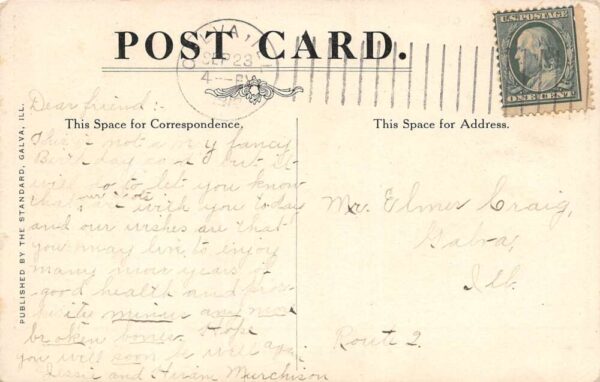 POST CARD.
GALVA, ILL.
SEP 23
4—PM
U.S. POSTAGE
ONE CENT
This Space for Correspondence.
This Space for Address.
PUBLISHED BY THE STANDARD, GALVA, ILL.
Dear friend:-
This is not a very fancy
Birthday card but it
will do to let you know
that we are with you today
and our wishes are that
you may live to enjoy
many more years of
good health and pros-
perity minus any more
broken bones. Hope
you will soon be well again
Jessie and Murchison
Mr. Elmer Craig,
Galva,
Ill.
Route 2.